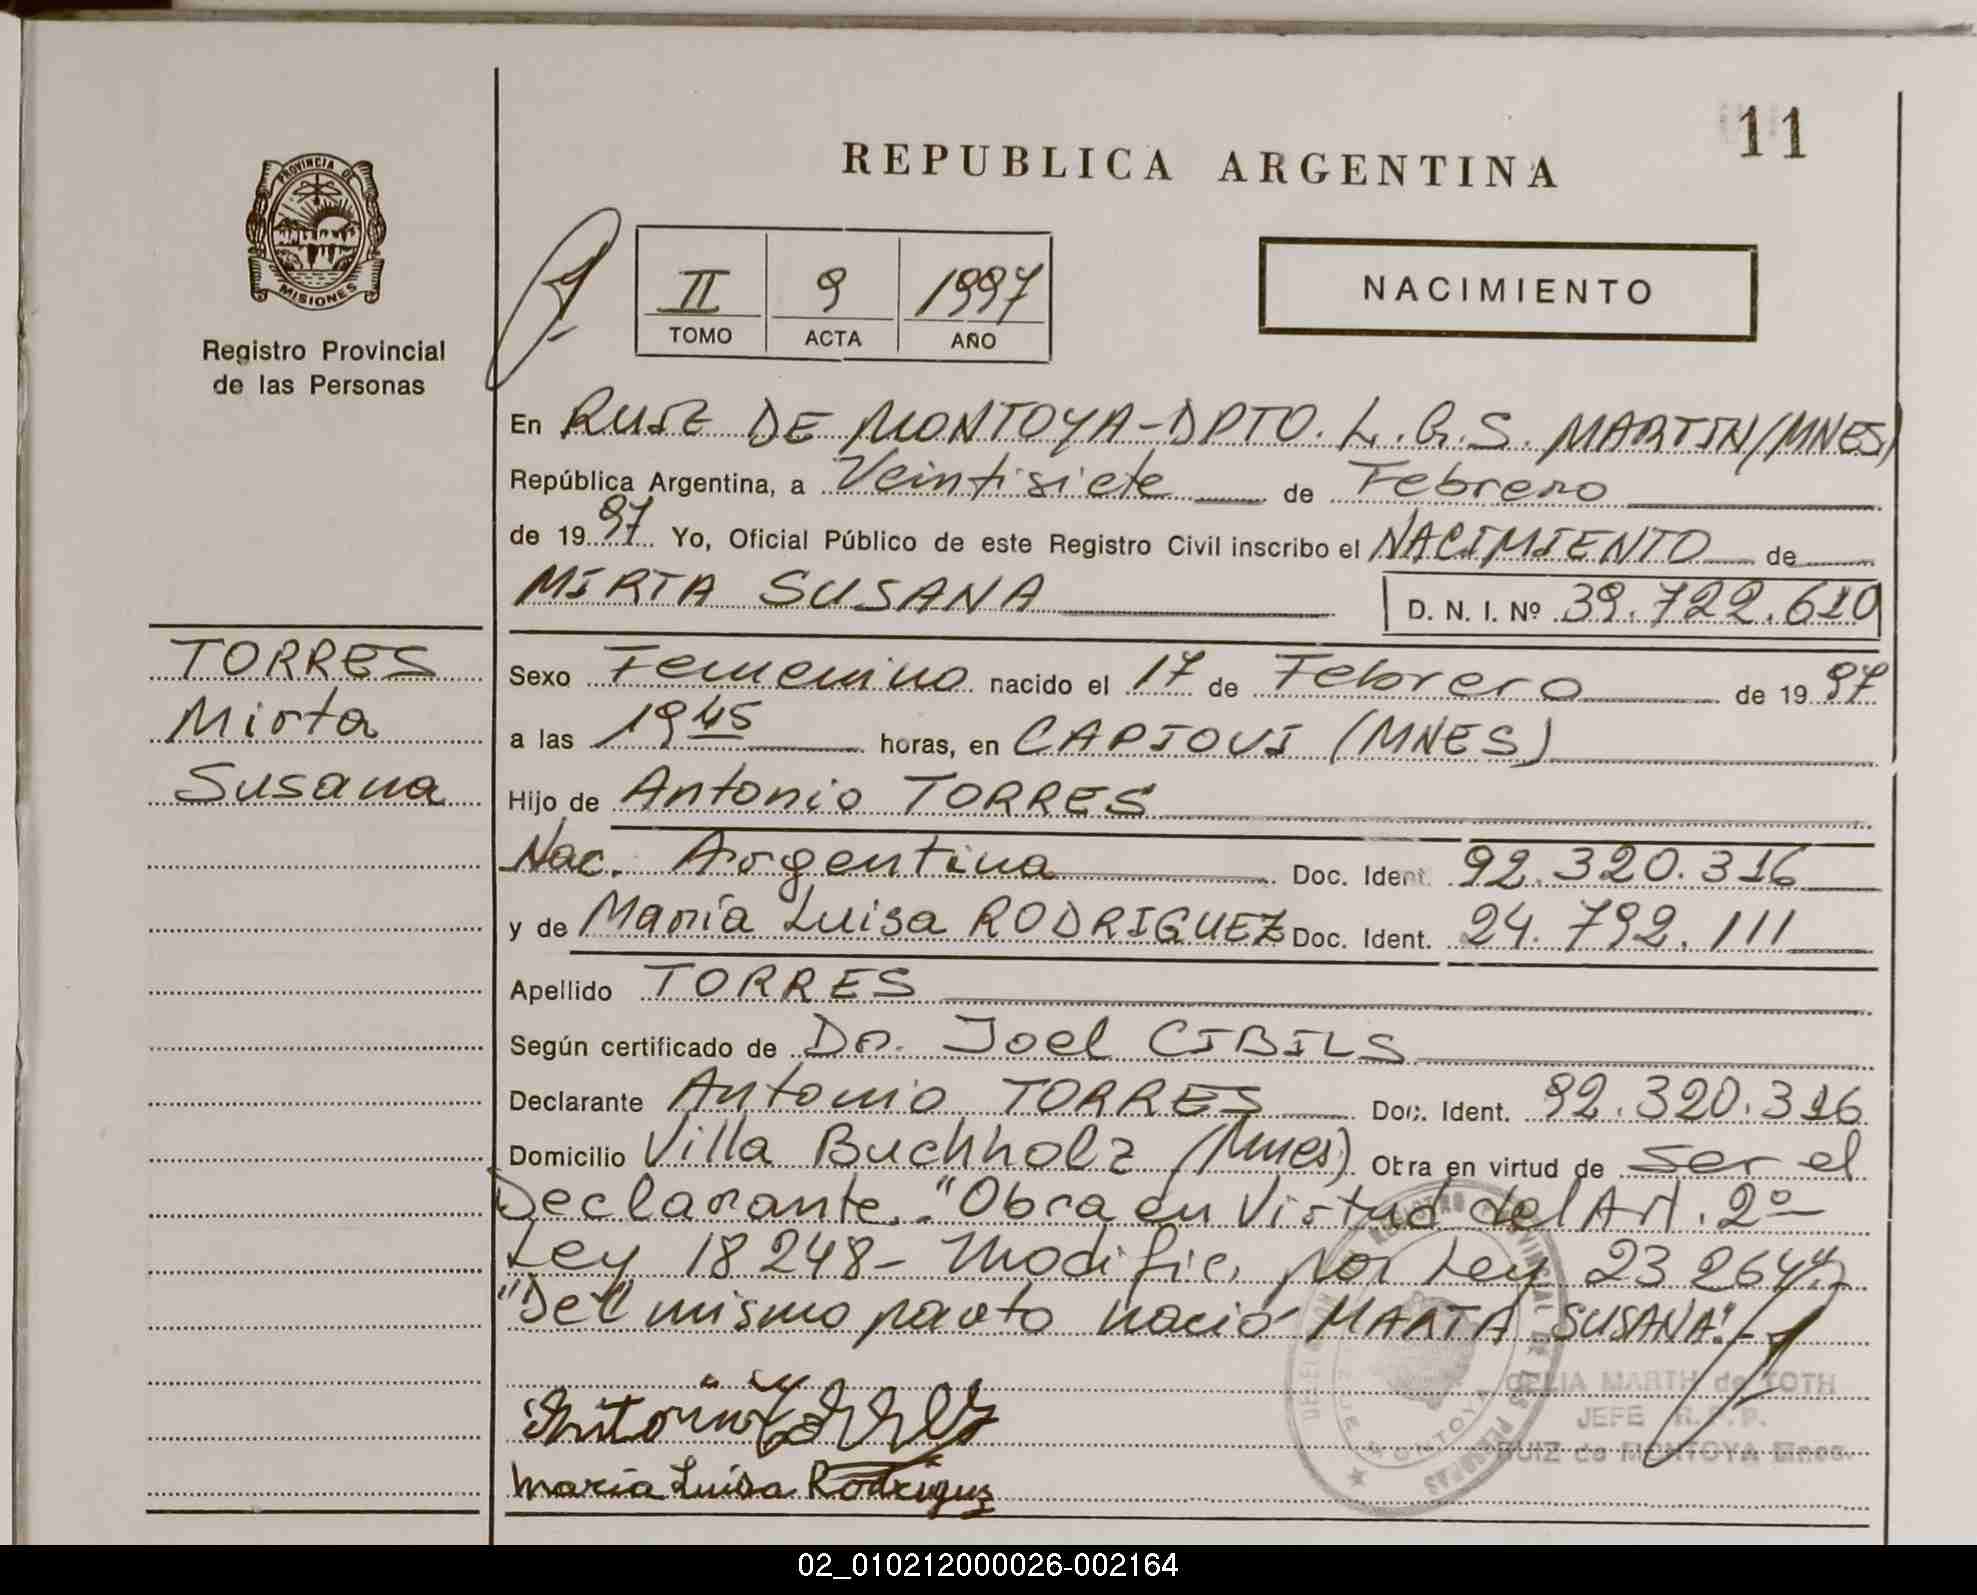 11
REPUBLICA ARGENTINA
PROVINCIA DE
MISIONES
Registro Provincial
de las Personas
II 9 1997
TOMO ACTA AÑO
NACIMIENTO
En RUIZ DE MONTOYA-DPTO. L.G.S. MARTIN/(MNES)
República Argentina, a Veintisiete de Febrero
de 1997 Yo, Oficial Público de este Registro Civil inscribo el NACIMIENTO de
MIRTA SUSANA D. N. I. Nº 39.722.610
TORRES
Mirta
Susana
Sexo Femenino nacido el 17 de Febrero de 1997
a las 19 45 horas, en CAPIOVI (MNES)
Hijo de Antonio TORRES
Nac. Argentina Doc. Ident. 92.320.316
y de María Luisa RODRIGUEZ Doc. Ident. 24.792.111
Apellido TORRES
Según certificado de Dr. Joel CIBILS
Declarante Antonio TORRES Doc. Ident. 92.320.316
Domicilio Villa Buchholz (Mnes) Obra en virtud de ser el
Declarante. "Obra en Virtud del Art. 2º
Ley 18248- Modific. por Ley 23264".
"Del mismo parto nació MARTA SUSANA".
Antonio Torres
Maria Luisa Rodriguez
REGISTRO PROVINCIAL DE LAS PERSONAS
CELIA MARTH de TOTH
JEFE R.P.P.
RUIZ de MONTOYA Mnes.
02_010212000026-002164